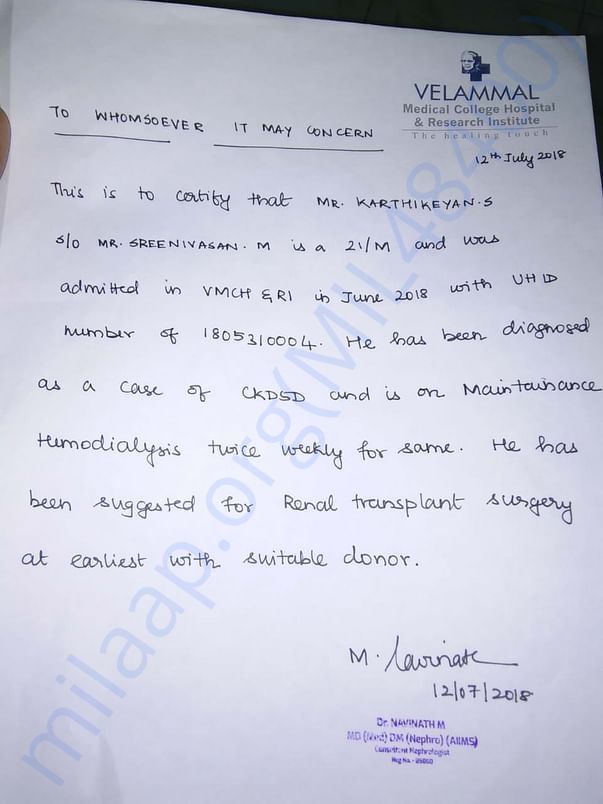 VELAMMAL
Medical College Hospital
& Research Institute
The healing touch
TO WHOMSOEVER IT MAY CONCERN
12th July 2018
This is to certify that MR. KARTHIKEYAN.S
s/o MR. SREENIVASAN.M is a 21/M and was
admitted in VMCH & RI in June 2018 with UHID
number of 1805310004. He has been diagnosed
as a case of CKD5D and is on Maintainance
Hemodialysis twice weekly for same. He has
been suggested for Renal transplant surgery
at earliest with suitable donor.
M.
12/07/2018
Dr. NAVINATH M
MD (Med) DM (Nephro) (AIIMS)
Consultant Nephrologist
Reg No -
milaap.org(MIL484